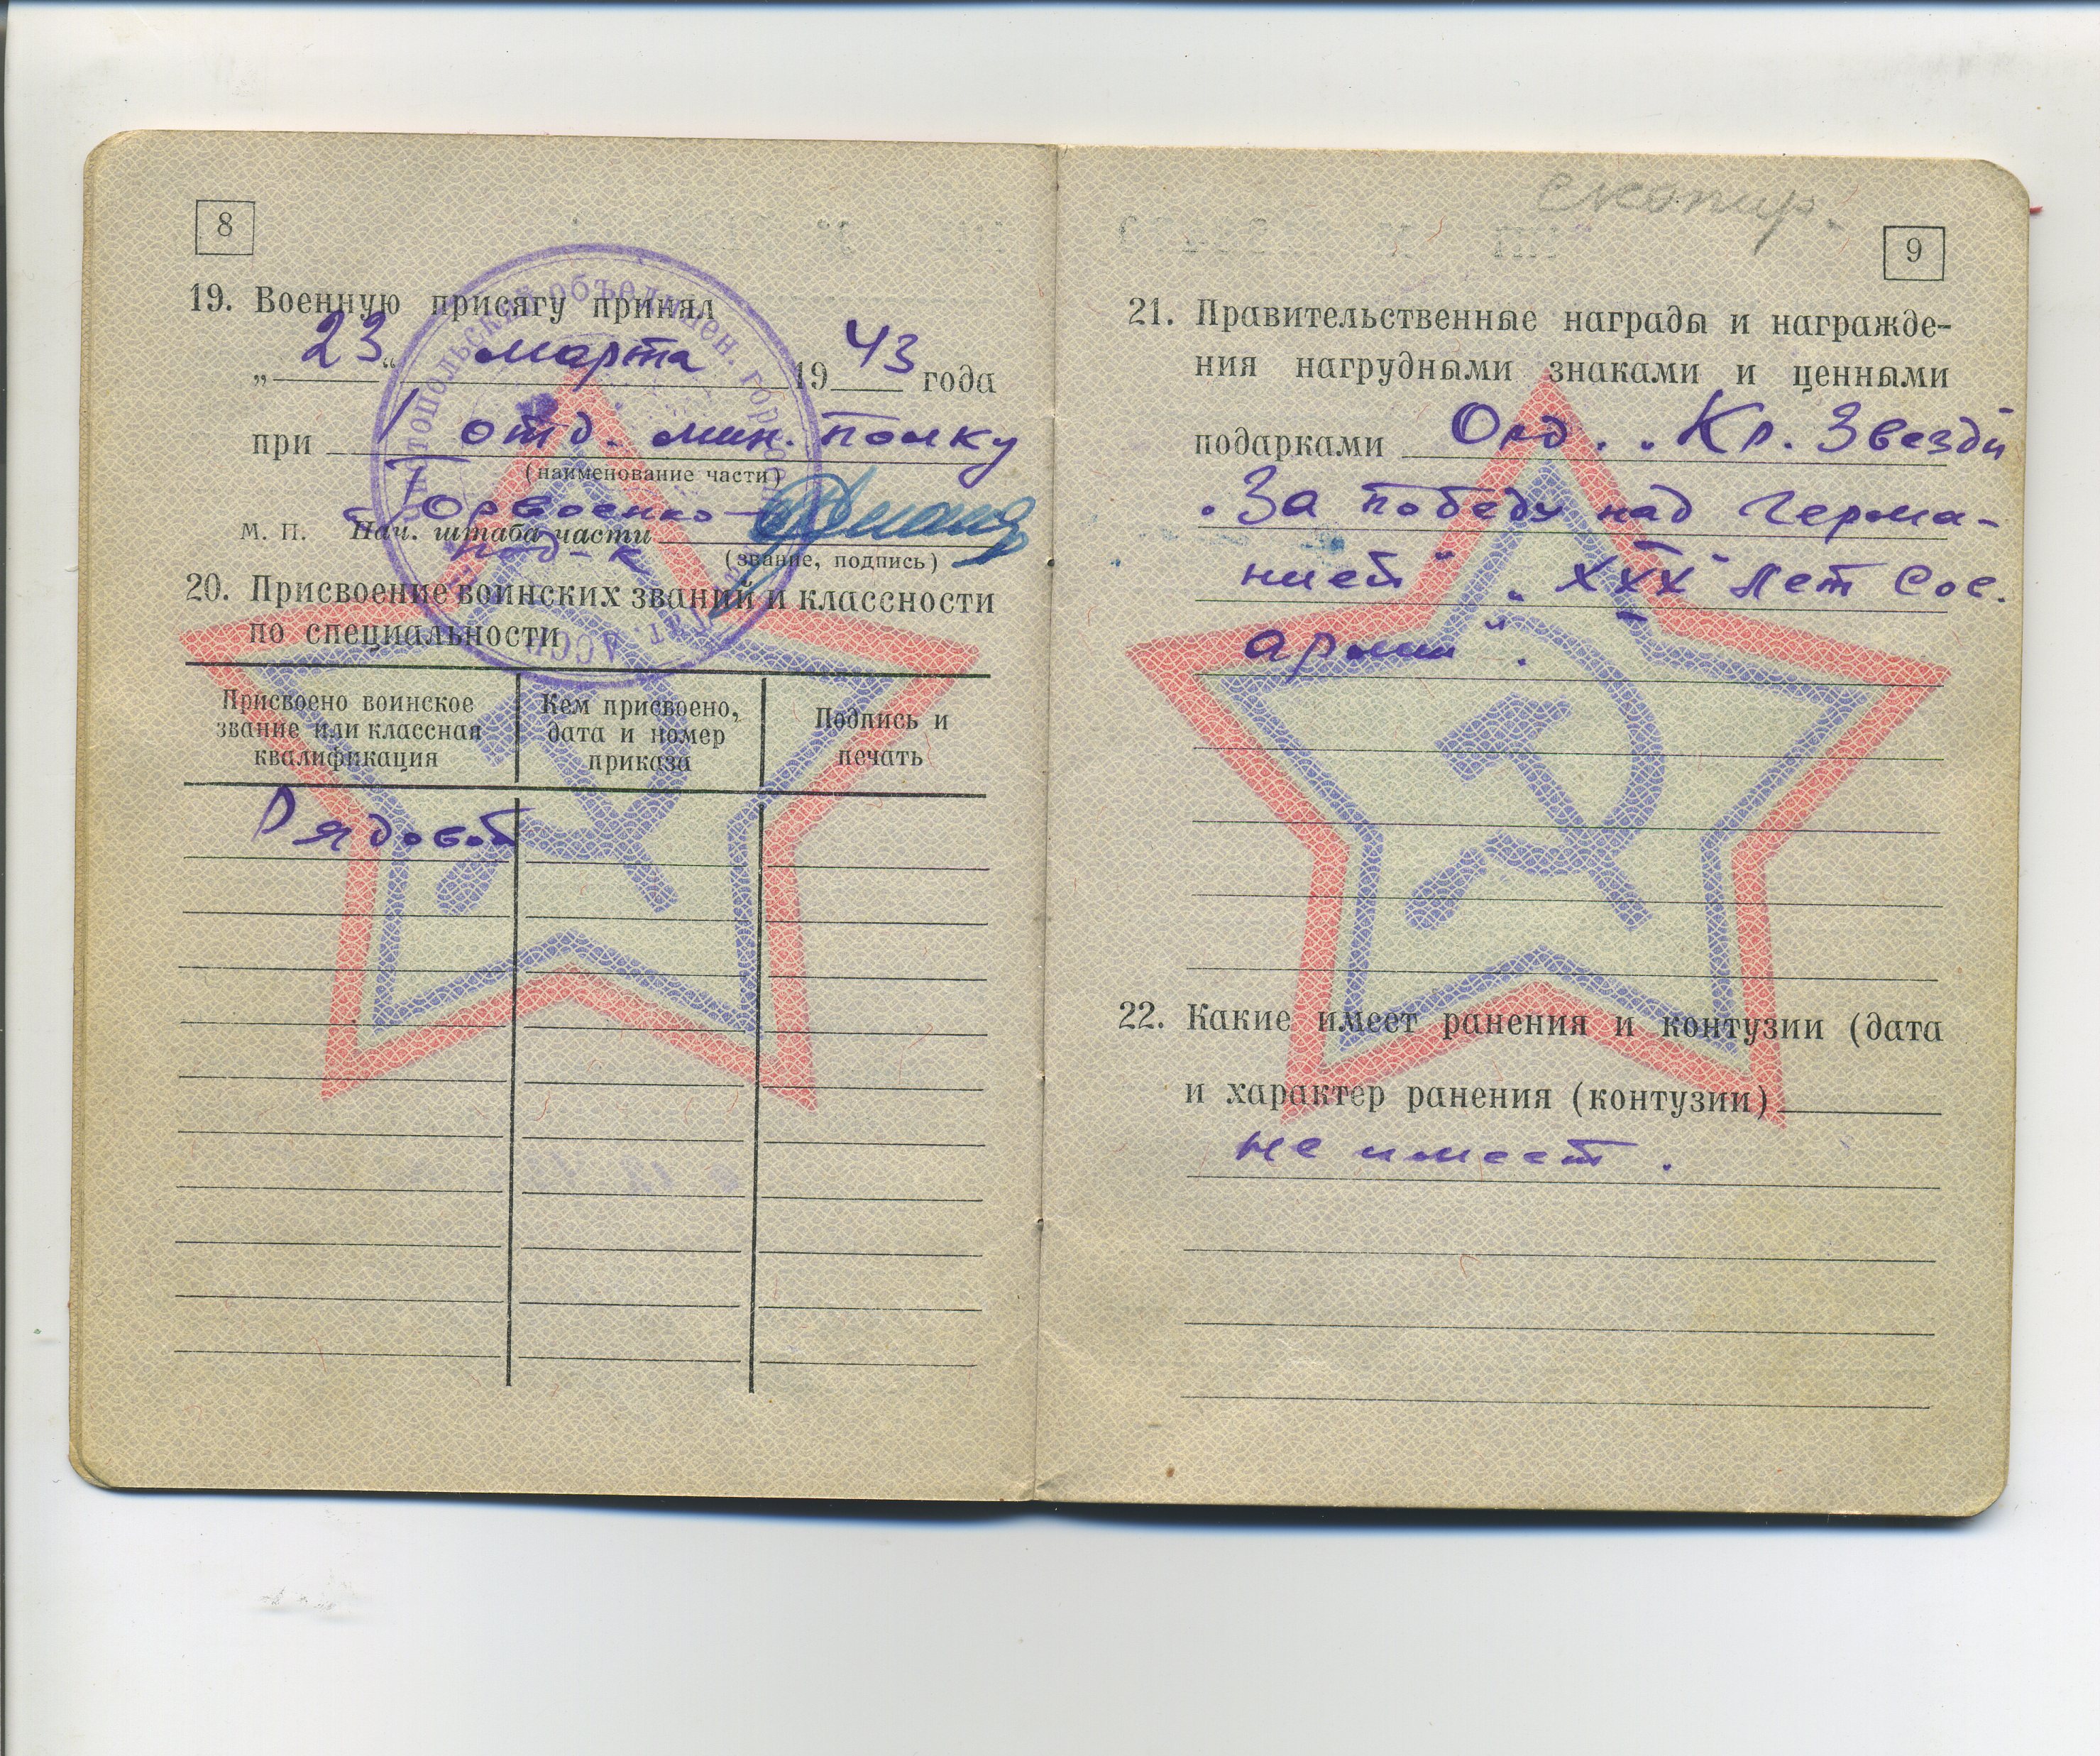 8
19. Военную присягу принял
„23“ марта 1943 года
при 1 отд. мин. полку
(наименование части)
Горвоенко-
М. П. Нач. штаба части
(звание, подпись)
под-к
20. Присвоение воинских званий и классности
по специальности
Присвоено воинское
звание или классная
квалификация
Кем присвоено,
дата и номер
приказа
Подпись и
печать
Рядовой
объединен. гор
Тат. АССР
скопир.
9
21. Правительственные награды и награжде-
ния нагрудными знаками и ценными
подарками Орд. „Кр. Звезды
„За победу над Герма-
нией“ „XXX лет Сов.
армии“.
22. Какие имеет ранения и контузии (дата
и характер ранения (контузии)
не имеет.